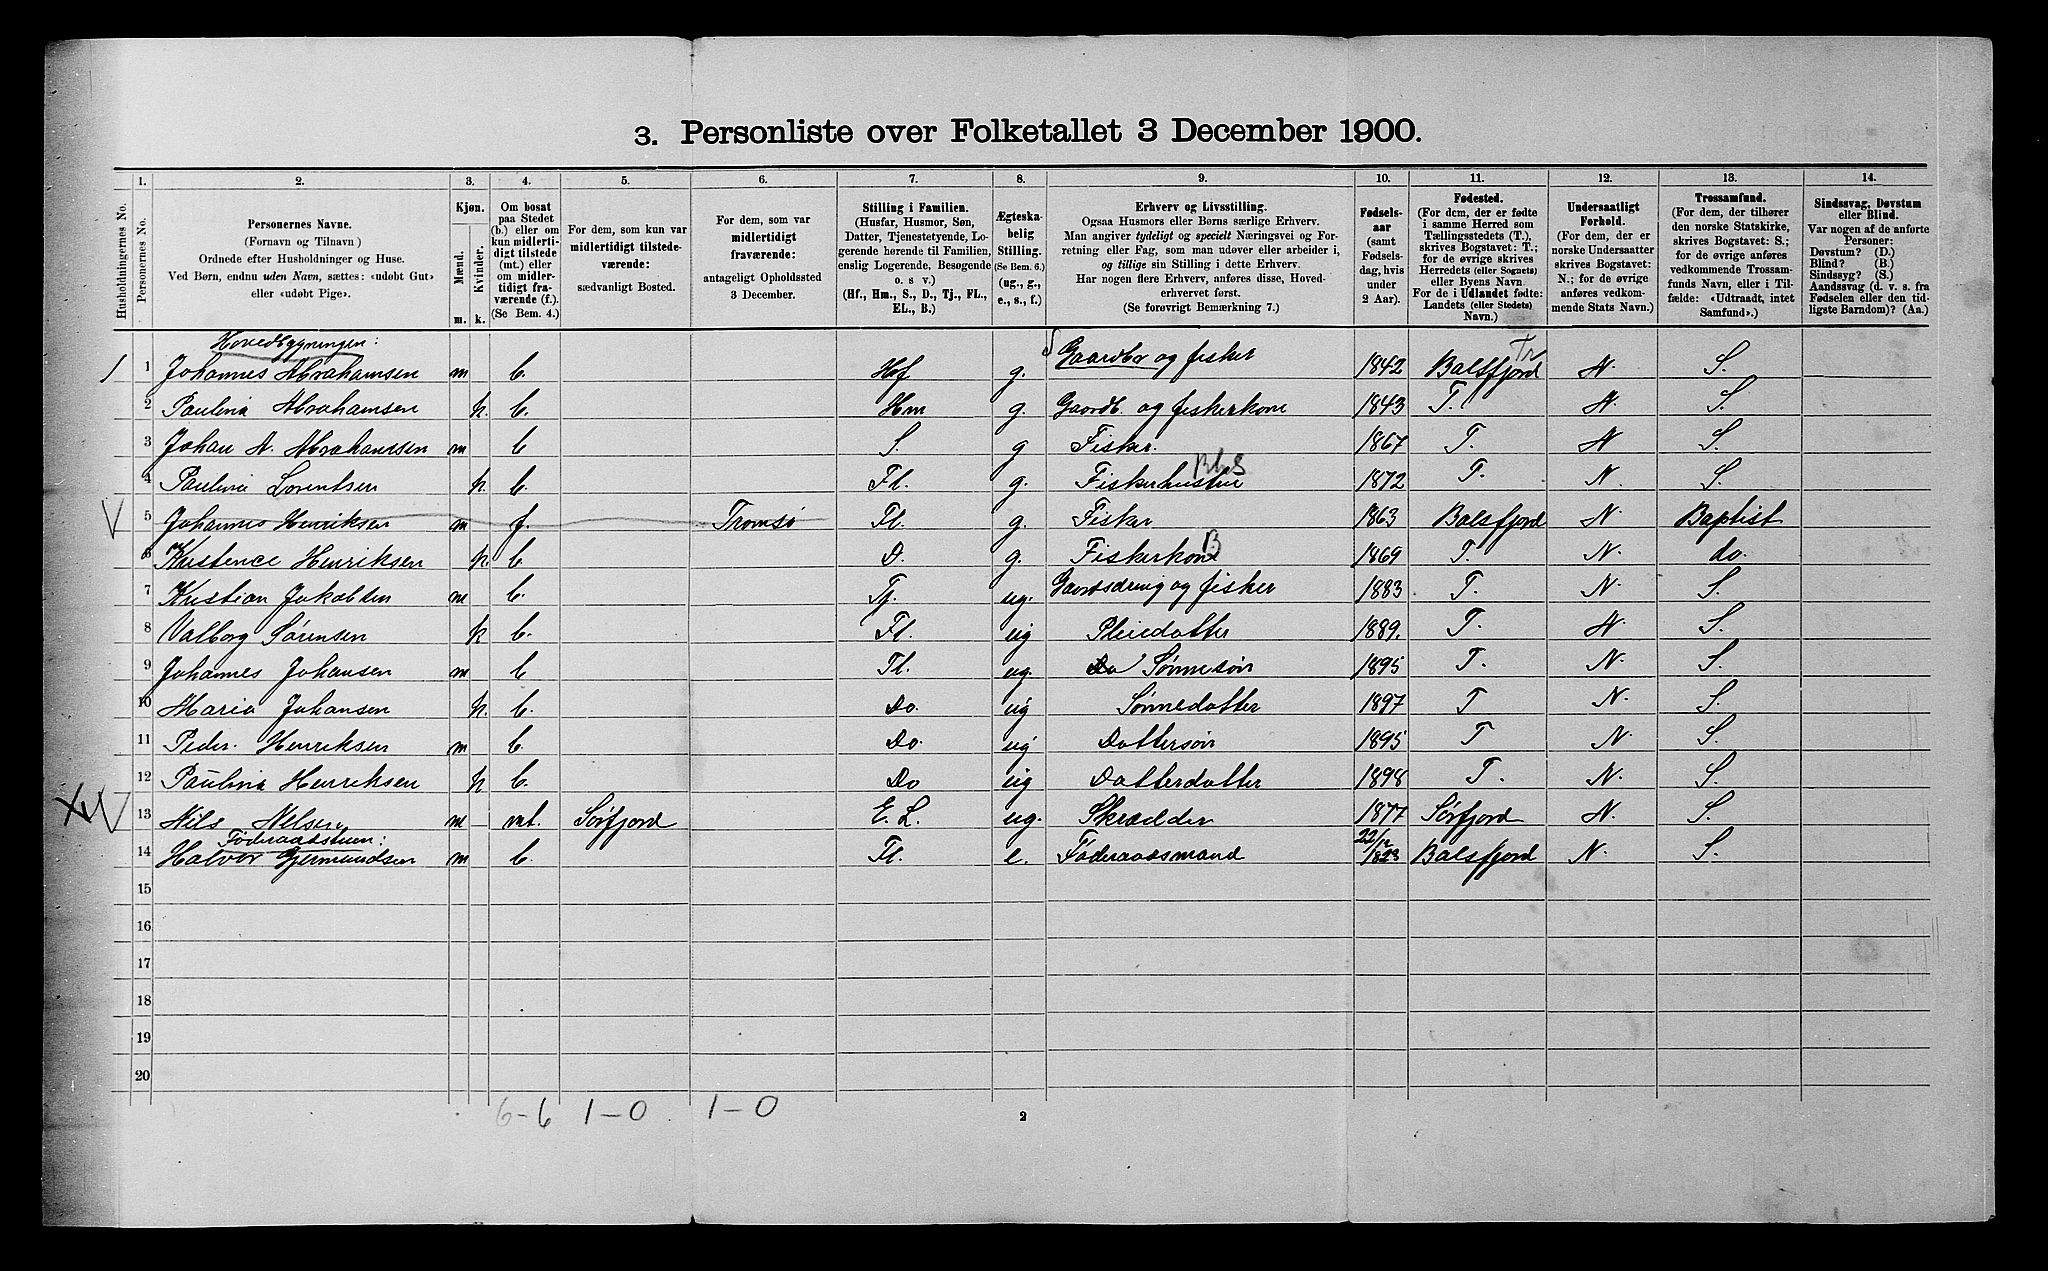 3. Personliste over Folketallet 3 December 1900.
Husholdningernes No.
1. Personernes No.
2. Personernes Navne. (Fornavn og Tilnavn) Ordnede efter Husholdninger og Huse. Ved Børn, endnu uden Navn, sættes: «udøbt Gut» eller «udøbt Pige».
3. Kjøn. Mænd. m. Kvinder. k.
4. Om bosat paa Stedet (b.) eller om kun midlertidigt tilstede (mt.) eller om midlertidigt fraværende (f.) (Se Bem. 4.)
5. For dem, som kun var midlertidigt tilstedeværende: sædvanligt Bosted.
6. For dem, som var midlertidigt fraværende: antageligt Opholdssted 3 December.
7. Stilling i Familien. (Husfar, Husmor, Søn, Datter, Tjenestetyende, Logerende hørende til Familien, enslig Logerende, Besøgende o. s v.) (Hf., Hm., S., D., Tj., FL., EL., B.)
8. Ægteskabelig Stilling. (Se Bem. 6.) (ug., g., e., s., f.)
9. Erhverv og Livsstilling. Ogsaa Husmors eller Børns særlige Erhverv. Man angiver tydeligt og specielt Næringsvei og Forretning eller Fag, som man udøver eller arbeider i, og tillige sin Stilling i dette Erhverv. Har nogen flere Erhverv, anføres disse, Hovederhvervet først. (Se forøvrigt Bemærkning 7.)
10. Fødselsaar (samt Fødselsdag, hvis under 2 Aar).
11. Fødested. (For dem, der er fødte i samme Herred som Tællingsstedets (T.), skrives Bogstavet: T.; for de øvrige skrives Herredets (eller Sognets) eller Byens Navn. For de i Udlandet fødte: Landets (eller Stedets) Navn.)
12. Undersaatligt Forhold. (For dem, der er norske Undersaatter skrives Bogstavet: N.; for de øvrige anføres vedkommende Stats Navn.)
13. Trossamfund. (For dem, der tilhører den norske Statskirke, skrives Bogstavet: S.; for de øvrige anføres vedkommende Trossamfunds Navn, eller i Tilfælde: «Udtraadt, intet Samfund».)
14. Sindssvag, Døvstum eller Blind. Var nogen af de anførte Personer: Døvstum? (D.) Blind? (B.) Sindssyg? (S.) Aandssvag (d. v. s. fra Fødselen eller den tidligste Barndom)? (Aa.)
Hovedbygningen:
1 Johannes Abrahamsen m b. Hf g. Gaardbr og fisker 1842 Balsfjord Tr N. S.
2 Paulina Abrahamsen k. b. Hm g. Gaardb. og fiskerkone 1843 T. N. S.
3 Johan A. Abrahamsen m b S. g Fisker. 1867 T. N S.
4 Pauline Lorentsen k. b. Fl. g. Fiskerhustru 1872 T. N. S.
5 Johannes Henriksen m f. Tromsø Fl. g. Fisker 1863 Balsfjord N. Baptist
6 Kristence Henriksen k. b D. g. Fiskerkone B 1869 T. N. do.
7 Kristian Jakobsen m b. Tj. ug. Gaardsdreng og fisker 1883 T. N. S.
8 Valborg Sørensen k b. Fl. ug Pleiedatter 1889. T. N. S.
9 Johannes Johansen m b Fl. ug. Sønnesøn 1895 T. N. S.
10 Maria Johansen k. b. Do. ug Sønnedatter 1897 T N. S.
11 Peder. Henriksen m b. Do. ug Dattersøn 1895 T N. S.
12 Paulina Henriksen k b. Do ug Datterdatter 1898 T. N. S.
13 Nils Nelsen m mt. Sørfjord E. L. ug. Skrædder 1877 Sørfjord N. S.
Føderaadstuen:
14 Halvor Gjermundsen m b. Fl. e. Føderaadsmand 22/12 1823 Balsfjord N. S.
15
16
17
18
19
20
6-6 1-0 1-0
2